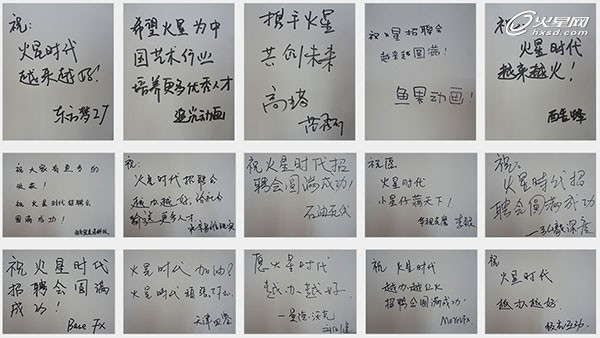 火星网
hxsd.com
祝:
火星时代
越来越好!
东方梦工厂
希望火星为中
国艺术行业
培养更多优秀人才
追光动画
携手火星
共创未来
祝火星招聘会
越来越圆满!
鱼果动画!
祝:
火星时代
越来越火!
酷蜂
祝大家有更多的
收获!
祝火星时代招聘会
圆满成功!
祝:
火星时代招聘会
越办越好,
输送更多人才
祝火星时代招
聘会圆满成功!
石油在线
祝愿
火星时代
火星仔满天下!
祝:
火星時代招
聘会圆满成功
祝火星时代
招聘会圆满
成功!
Base Fx
火星时代加油!
火星时代
愿火星时代
越办越好
祝火星时代
越办越火
招聘会圆满成功!
MoreFx
祝:
火星时代
越办越好.